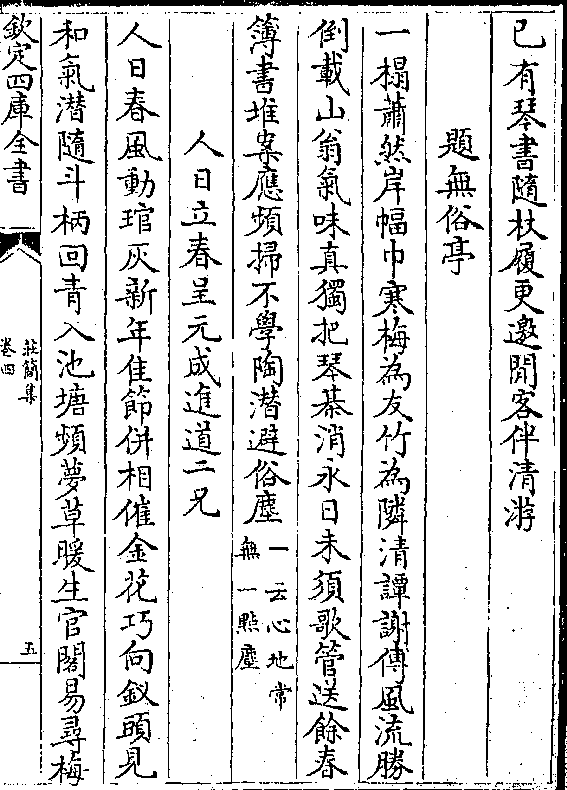 已有琴書隨杖屨更邀閒客伴清游
題無俗亭
一榻蕭然岸幅巾寒梅為友竹為隣清譚謝傅風流勝
倒載山翁氣味真獨把琴棊消永日未須歌管送餘春
簿書堆案應頻掃不學陶潛避俗塵一云心地常
無一點塵
人日立春呈元成進道二兄
人日春風動琯灰新年佳節併相催金花巧向釵頭見
和氣潛隨斗柄回青入池塘頻夢草暖生官閣易尋梅
欽定四庫全書
莊簡集
卷四
五